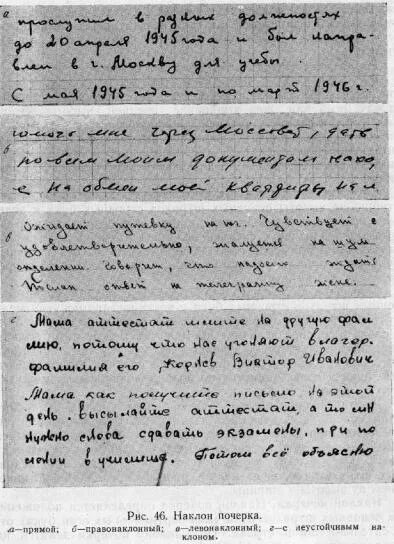 а прослужил в разных должностях
до 20 апреля 1945 года и был напра-
влен в г. Москву для учебы.
С мая 1945 года и по март 1946 г.
б помочь мне через Моссовет, дать
по всем моим документам
на обмен моей квартиры на
в Ожидает путевку на юг. Чувствует с
удовлетворительно, жалуется на шум
отделении. Говорит, что надоело ждать
Послан ответ на телеграмму жене.
г Мама аттестат шлите на другую фам
лию, потому что нас угоняют в лагер.
фамилия его, Корнев Виктор Иванович
Мама как получите письмо на этой
день. высылайте аттестат, а то мн
нужно снова сдавать экзамены, при по
в училище. Потом всё объясню
Рис. 46. Наклон почерка.
а—прямой; б—правонаклонный; в—левонаклонный; г—с неустойчивым на-
клоном.